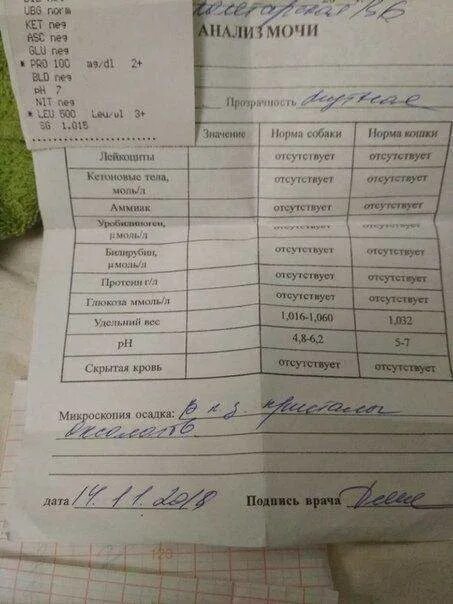 UBG norm
KET neg
ASC neg
GLU neg
* PRO 100 mg/dl 2+
BLD neg
pH 7
NIT neg
* LEU 500 Leu/ul 3+
SG 1.015
АНАЛИЗ МОЧИ
Прозрачность мутная
Значение Норма собаки Норма кошки
Лейкоциты отсутствует отсутствует
Кетоновые тела, моль/л отсутствует отсутствует
Аммиак отсутствует отсутствует
Уробилиноген, µмоль/л отсутствует отсутствует
Билирубин, µмоль/л отсутствует отсутствует
Протеин г/л отсутствует отсутствует
Глюкоза ммоль/л отсутствует отсутствует
Удельний вес 1,016-1,060 1,032
pH 4,8-6,2 5-7
Скрытая кровь отсутствует отсутствует
Микроскопия осадка: в п.з. кристалы
оксалатов
дата 14.11.2018 Подпись врача